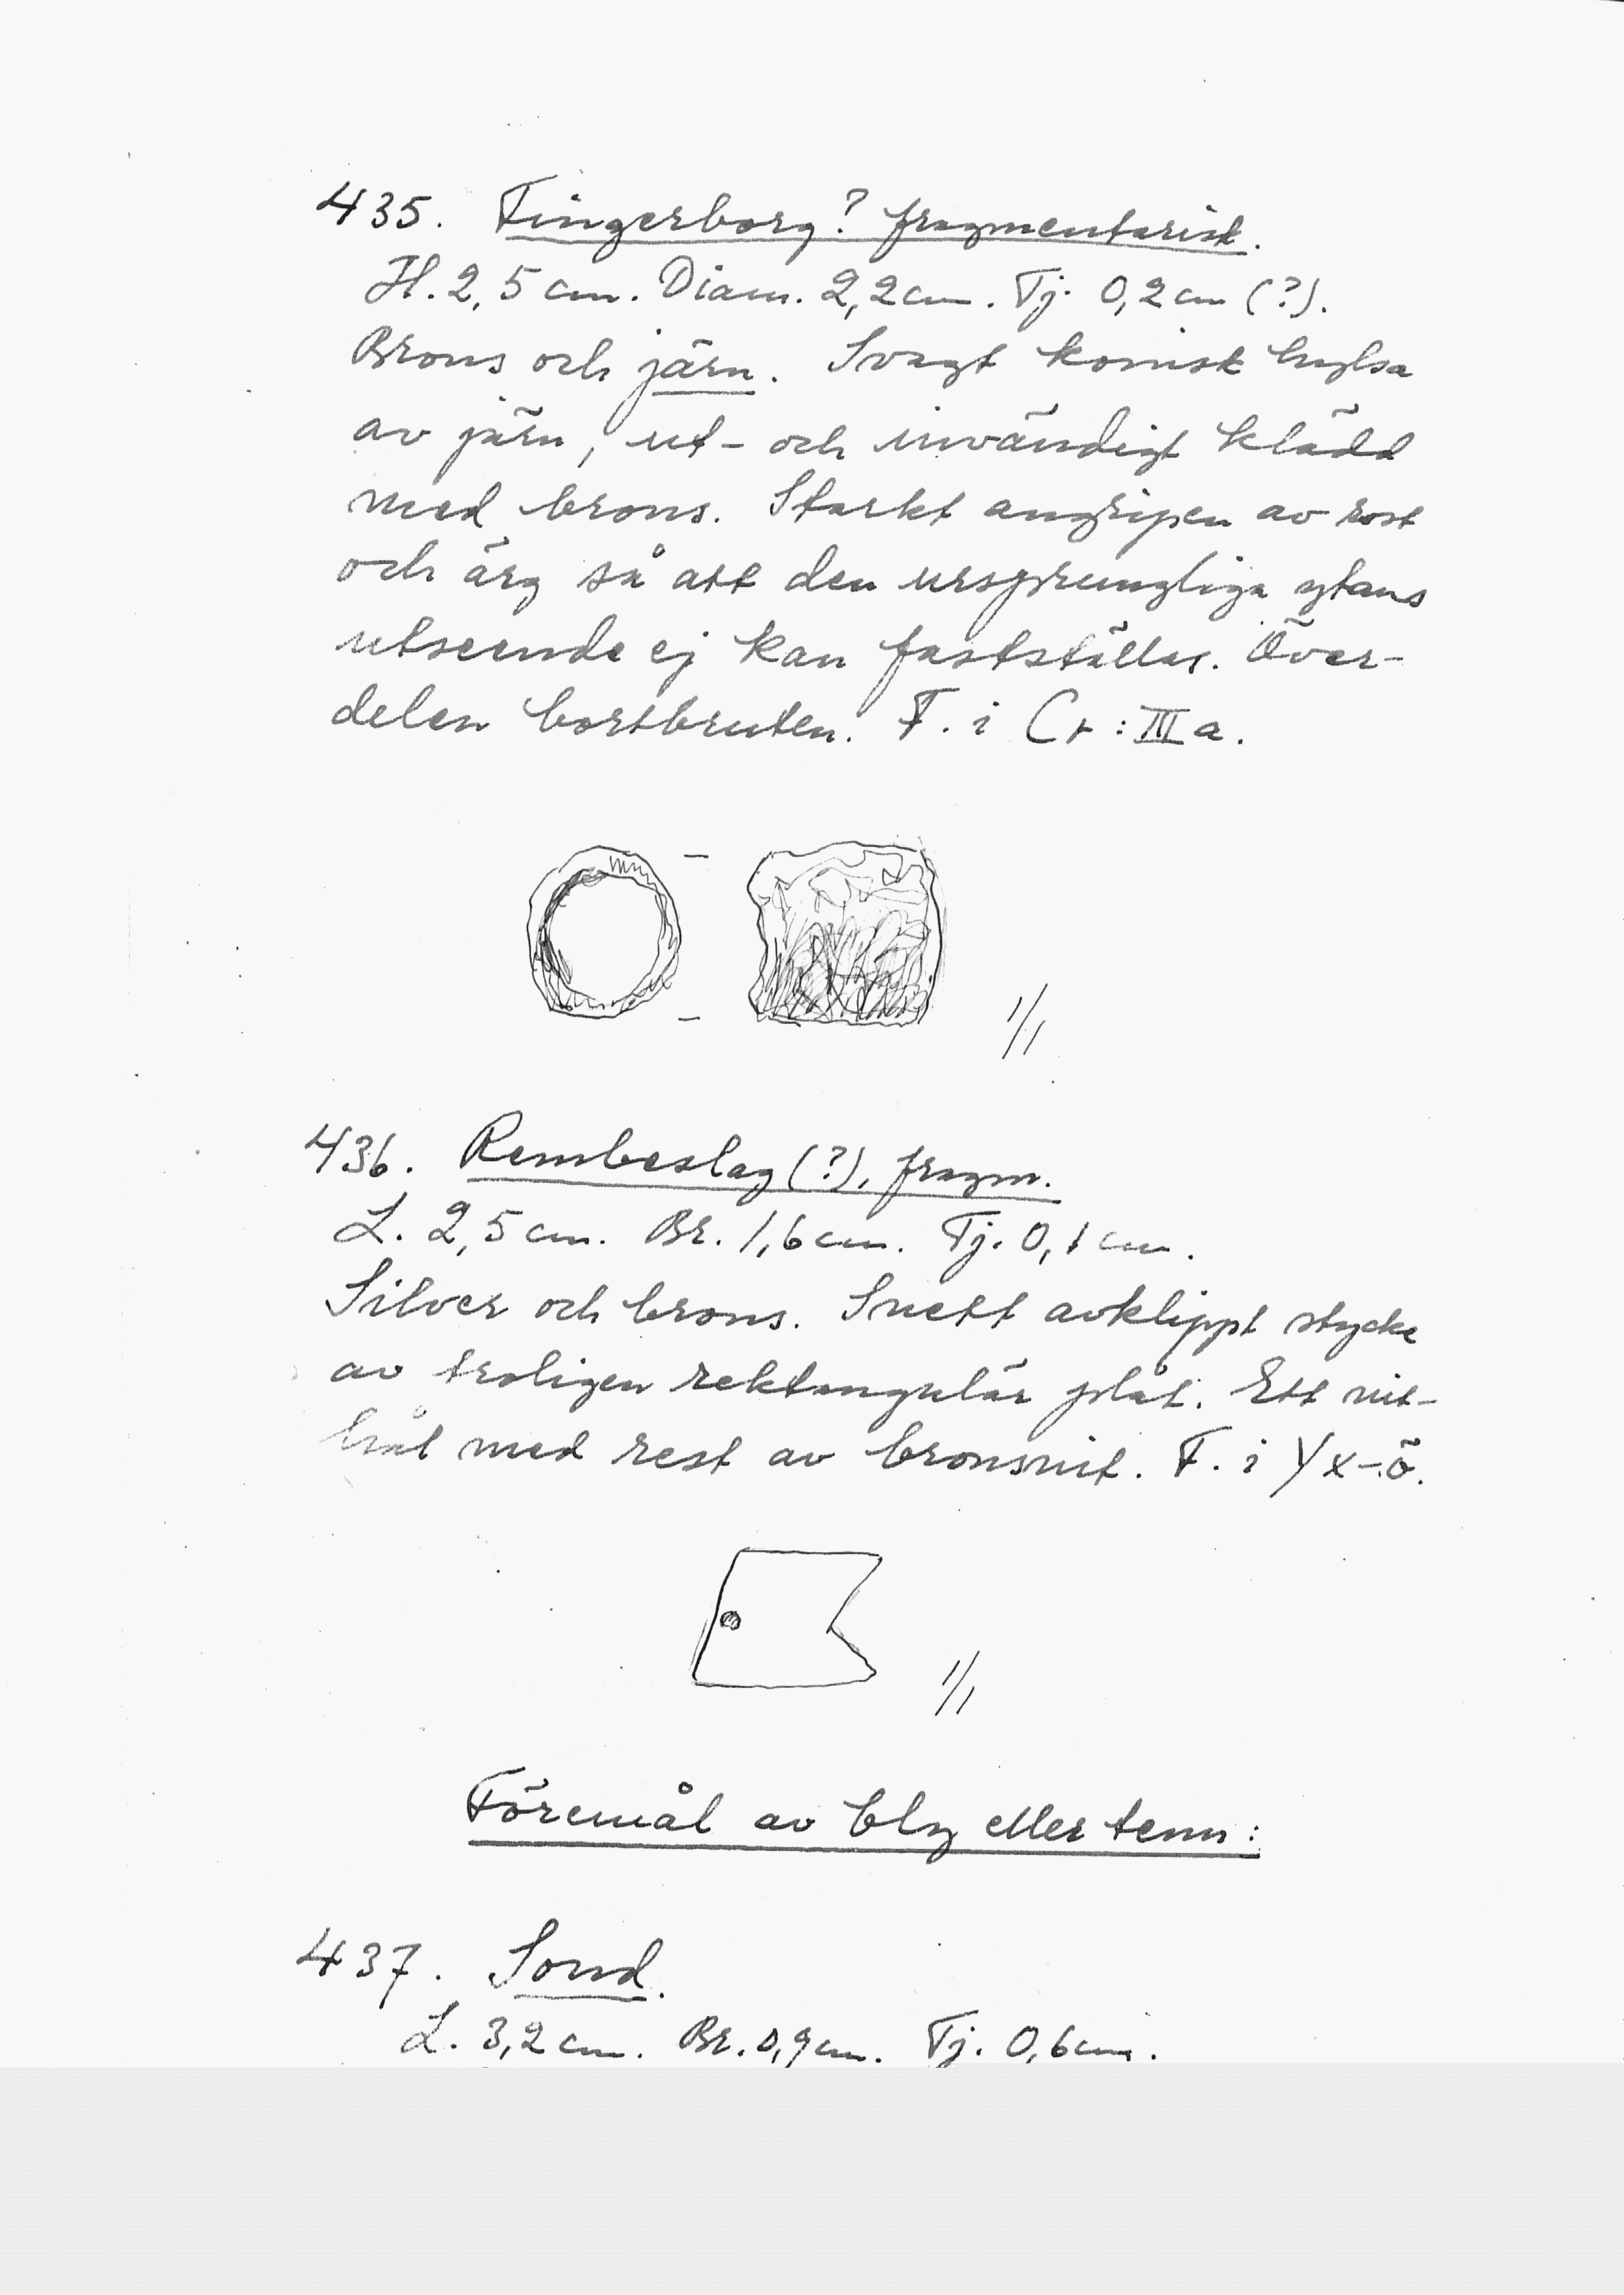 435. Fingerborg? fragmentarisk.
H. 2,5 cm. Diam. 2,2 cm. Tj. 0,2 cm (?).
Brons och järn. Svagt konisk hylsa
av järn, ut- och invändigt klädd
med brons. Starkt angripen av rost
och ärg så att den ursprungliga ytans
utseende ej kan fastställas. Över-
delen bortbruten. F. i Cr:IIIa.
1/1
436. Rembeslag (?), fragm.
L. 2,5 cm. Br. 1,6 cm. Tj. 0,1 cm.
Silver och brons. Snett avklippt stycke
av troligen rektangulär plåt. Ett nit-
hål med rest av bronsnit. F. i Yx-ö.
1/1
Föremål av bly eller tenn:
437. Sond.
L. 3,2 cm. Br. 0,9 cm. Tj. 0,6 cm.